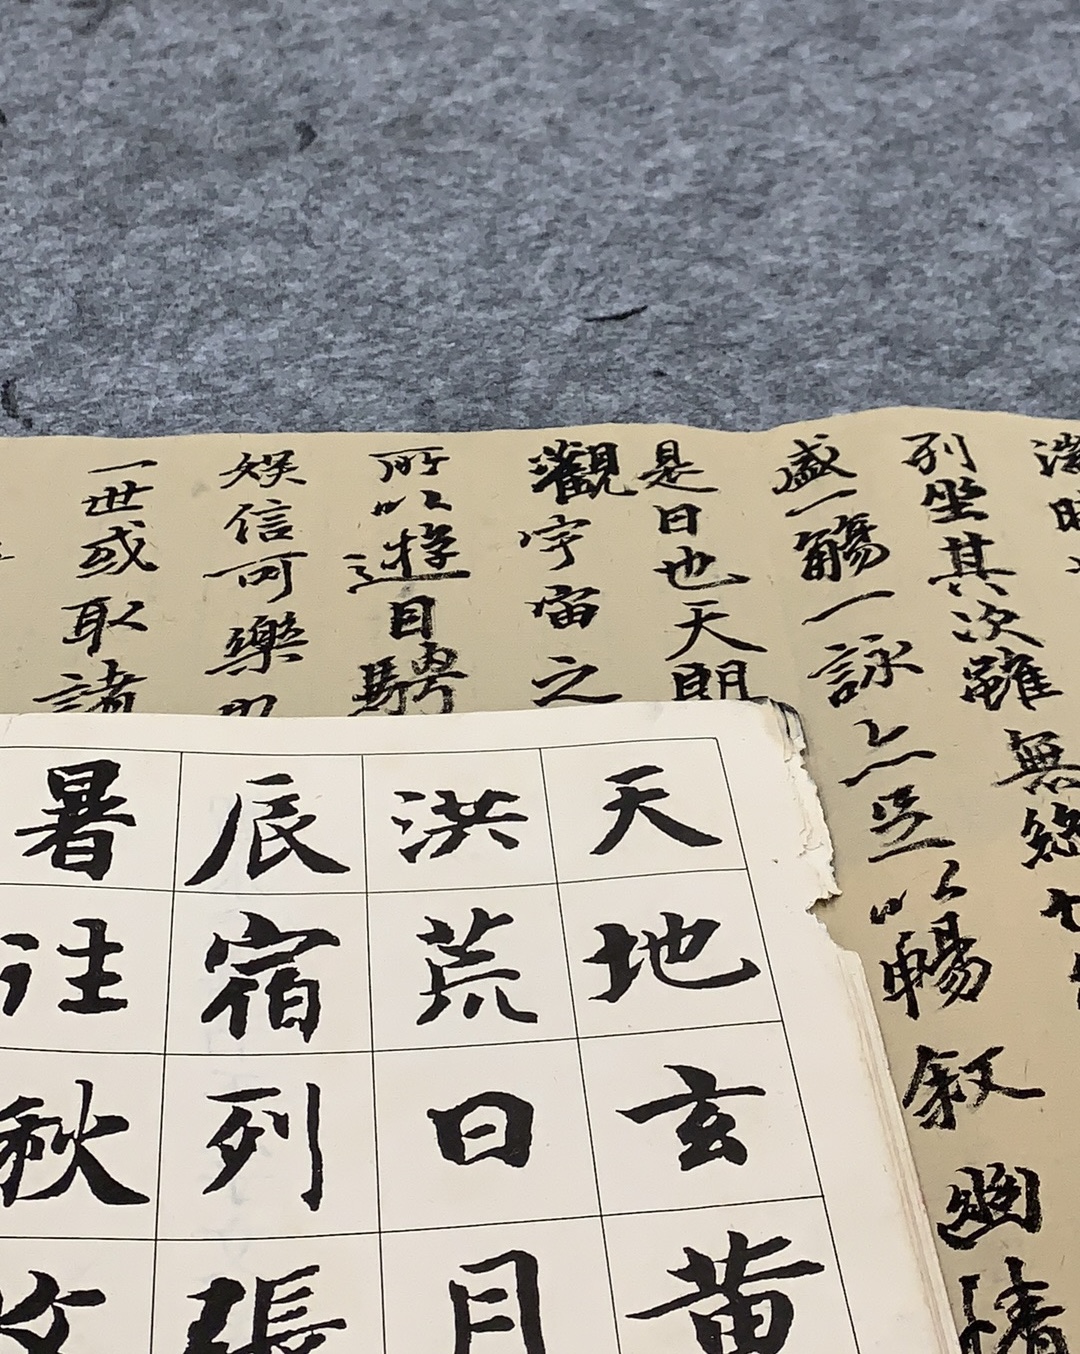 列坐其次雖無
盛一觴一詠亦足以暢叙幽情
是日也天朗
觀宇宙之
所以遊目騁
娱信可樂也
一世或取諸
天地玄黄
洪荒日月
辰宿列張
暑往秋收